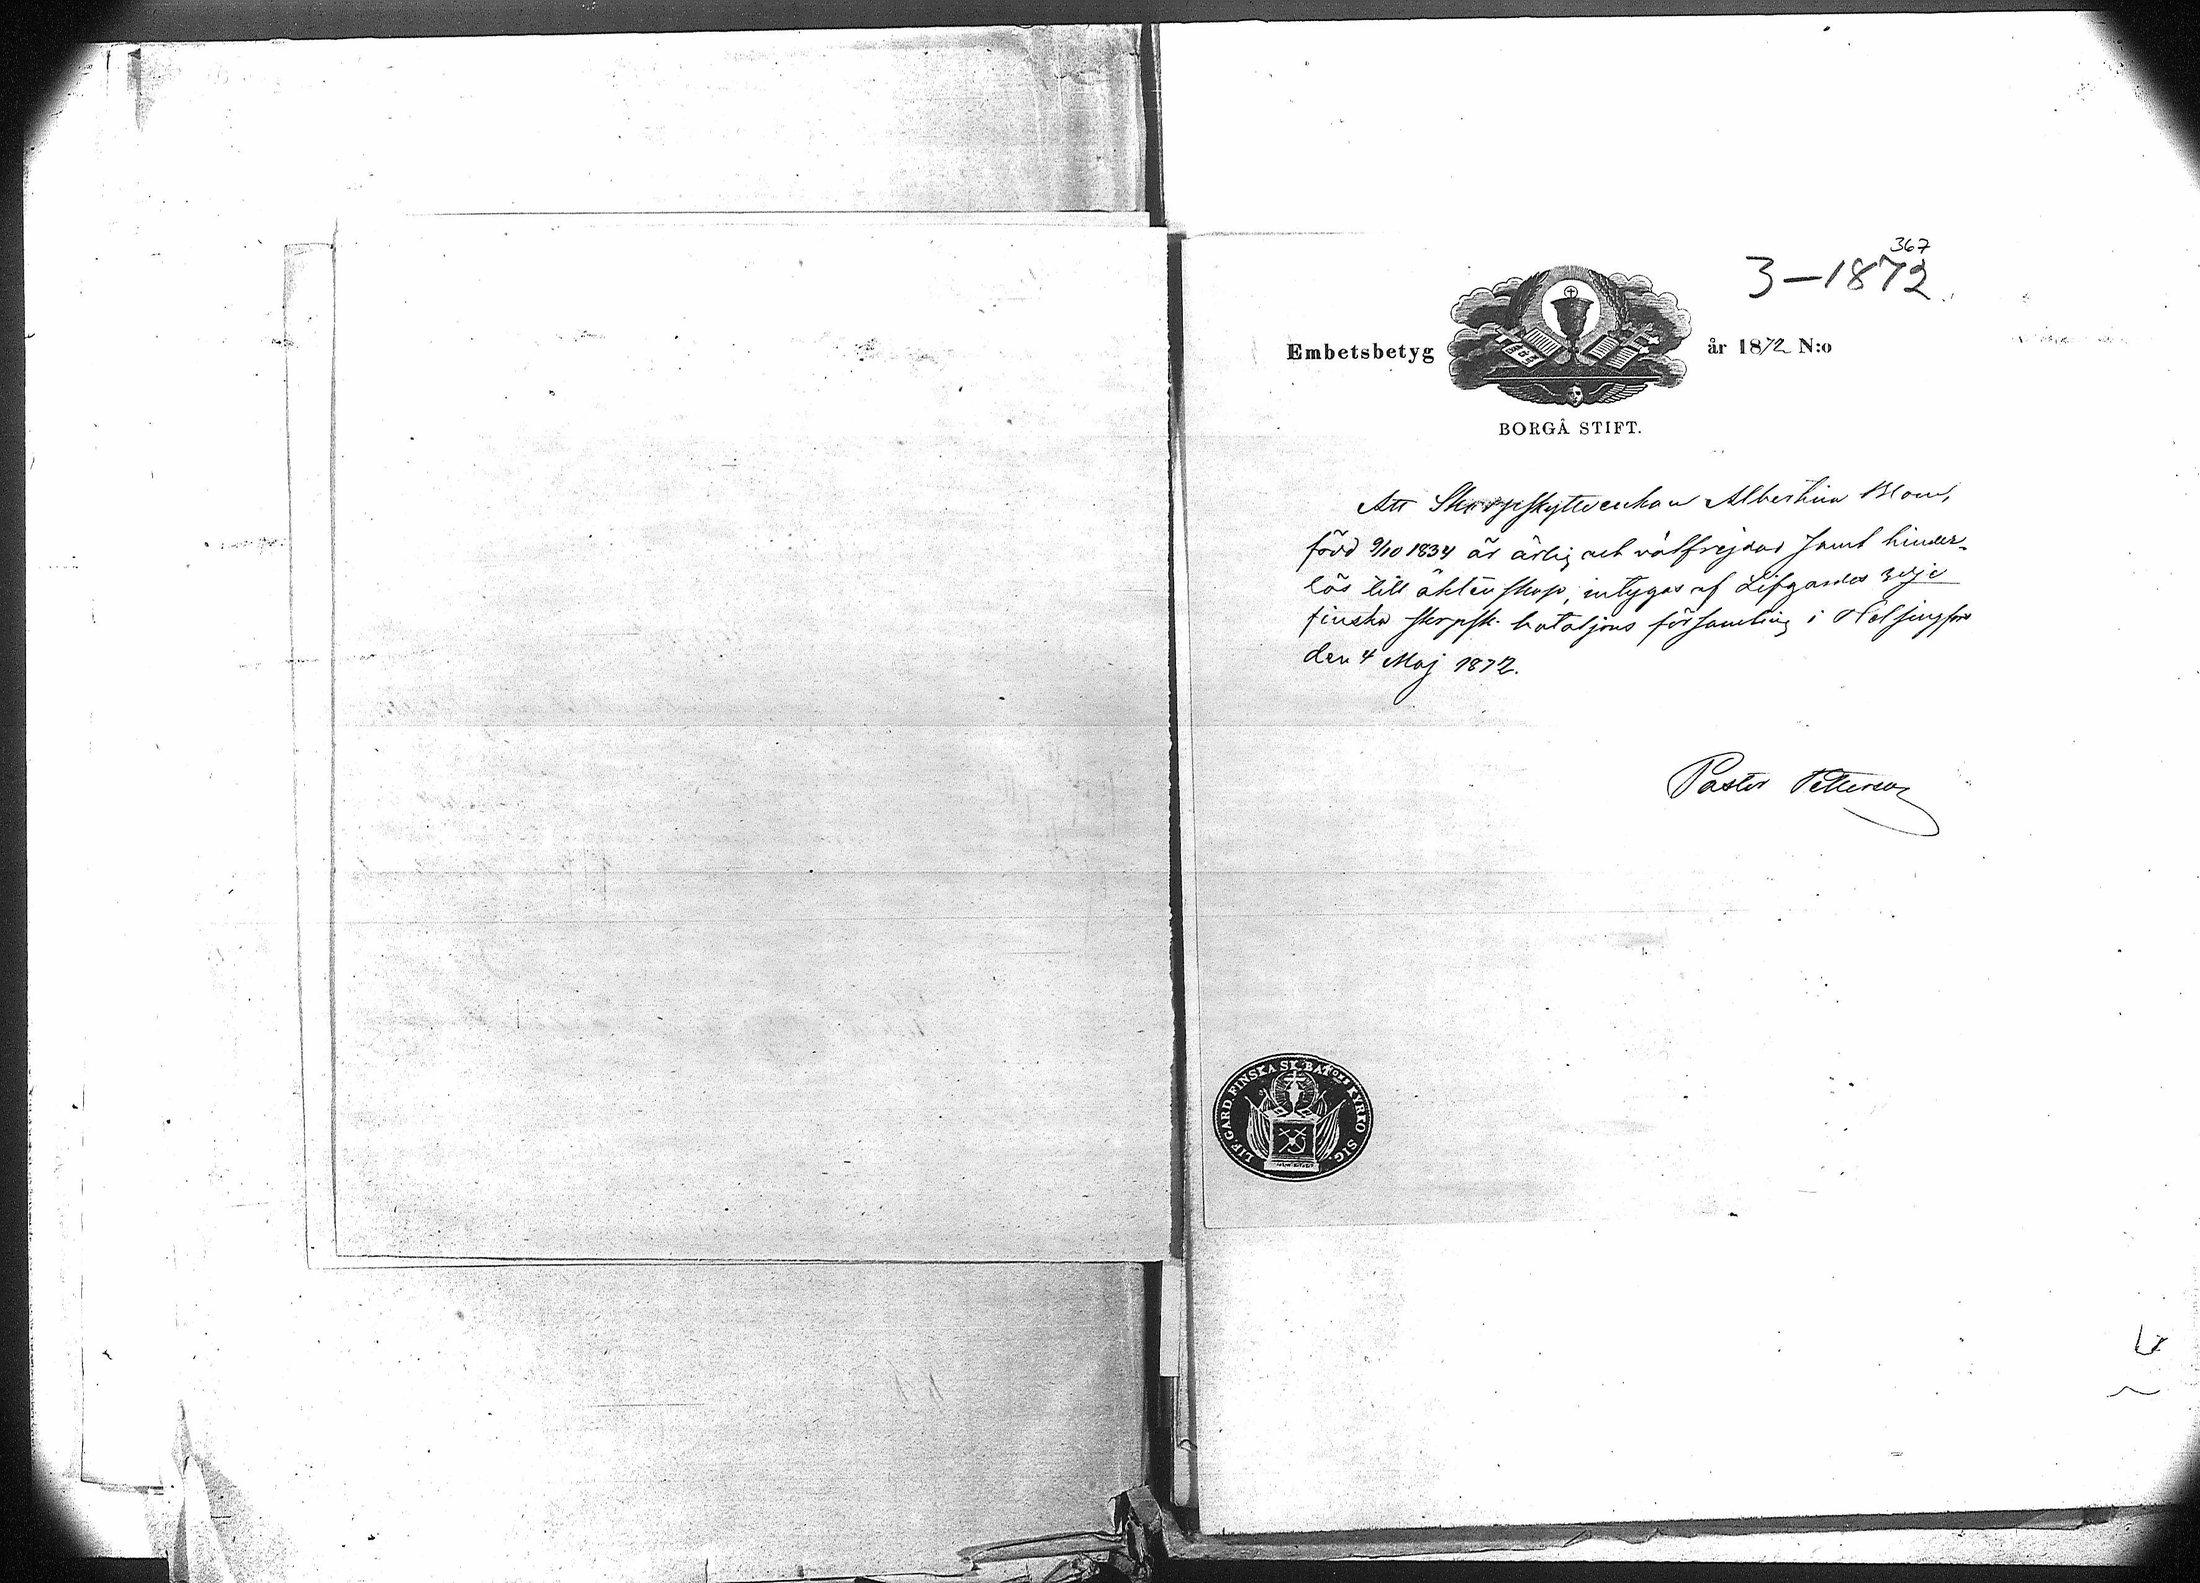 367
3-1872
Embetsbetyg
år 1872 N:o
BORGÅ STIFT.
Att Skarpskytteenkan Albertina Blom,
född 9/10 1834 är ärlig och välfrejdad samt hinder-
lös till äktenskap, intygas af Lifgardes 3dje
finska skrpsk. bataljons församling i Helsingfors
den 4 Maj 1872.
Pastor Petterson
LIF. GARD. FINSKA SK. BATons KYRKO SIG.